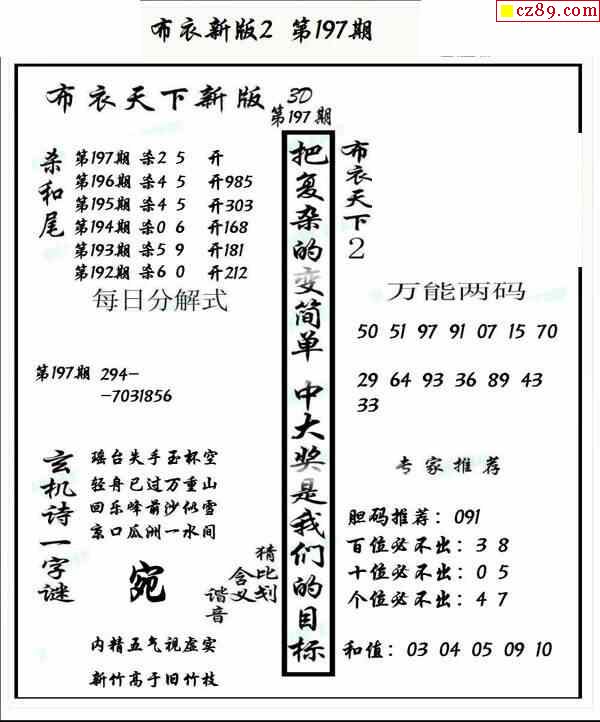 cz89.com
布衣新版2 第197期
布衣天下新版 3D
第197期
杀和尾
第197期 杀2 5 开
第196期 杀4 5 开985
第195期 杀4 5 开303
第194期 杀0 6 开168
第193期 杀5 9 开181
第192期 杀6 0 开212
每日分解式
第197期 294-
-7031856
玄机诗一字谜
瑶台失手玉杯空
轻舟已过万重山
回乐峰前沙似雪
京口瓜洲一水间
宛
猜比划
含义
谐音
内精五气视虚实
新竹高于旧竹枝
把复杂的变简单 中大奖是我们的目标
布衣天下2
万能两码
50 51 97 91 07 15 70
29 64 93 36 89 43
33
专家推荐
胆码推荐：091
百位必不出：3 8
十位必不出：0 5
个位必不出：4 7
和值：03 04 05 09 10